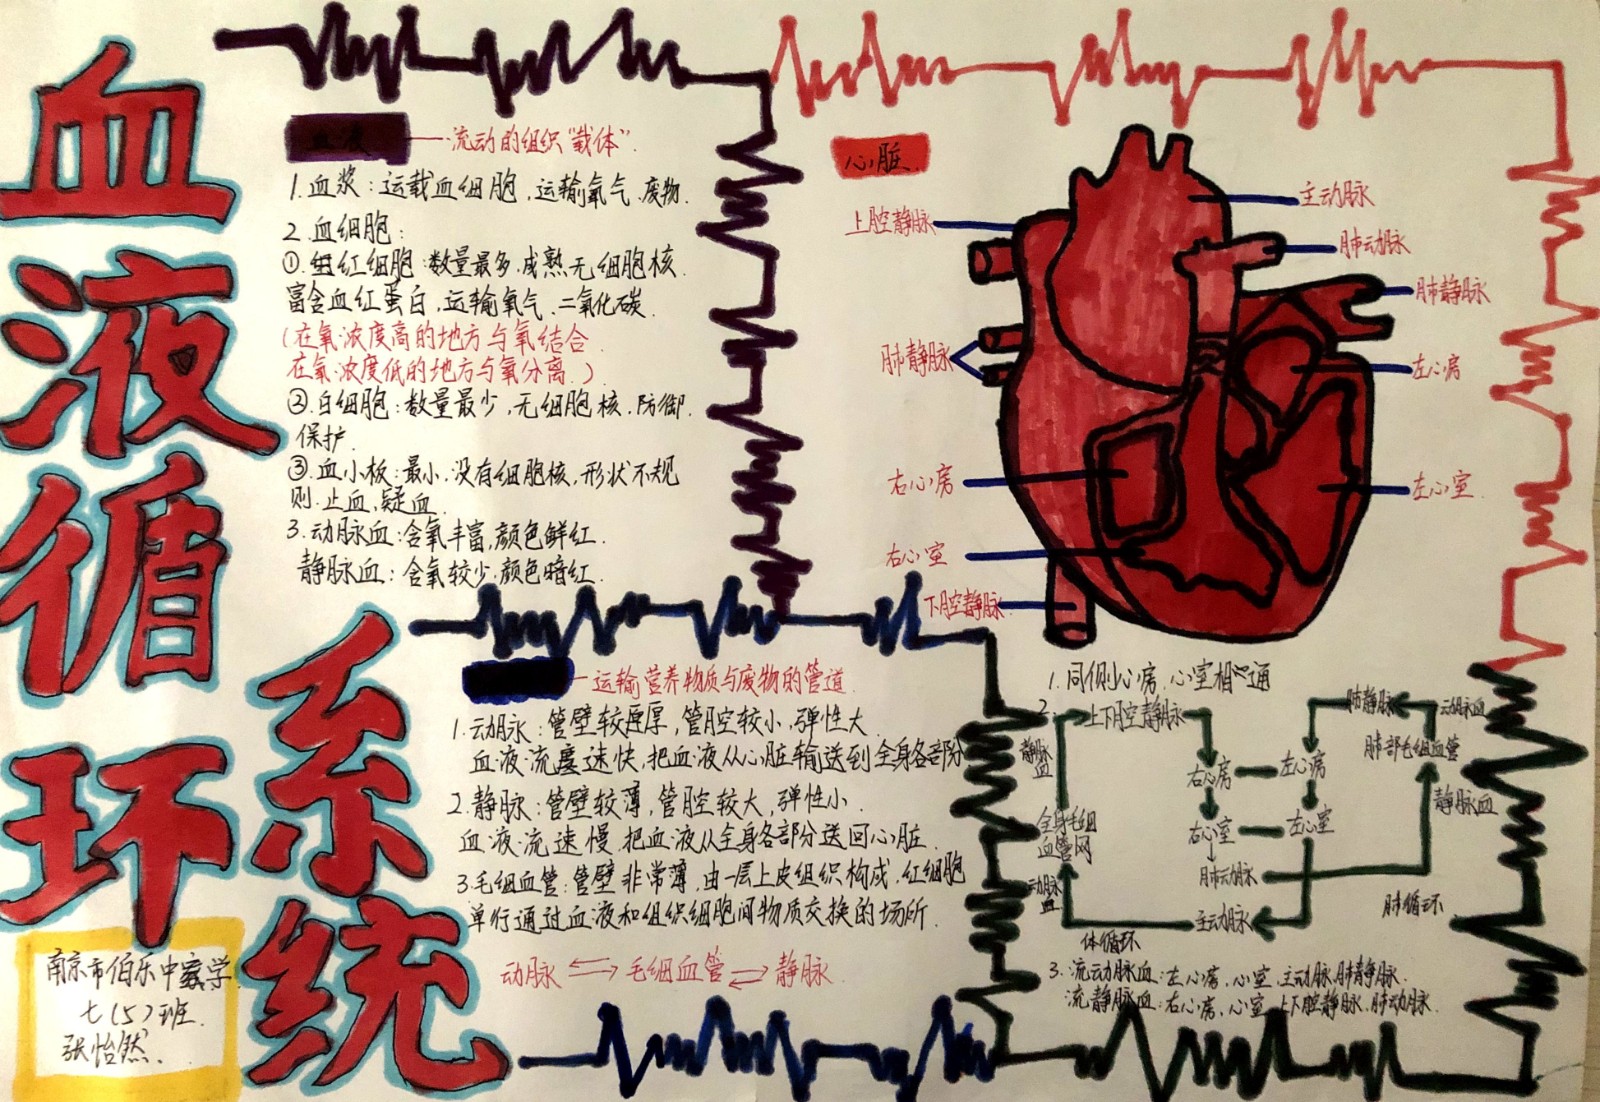 血液循环系统
血液
流动的组织"载体"
1.血浆:运载血细胞,运输氧气.废物.
2.血细胞:
①.红细胞:数量最多.成熟无细胞核.
富含血红蛋白,运输氧气、二氧化碳.
(在氧浓度高的地方与氧结合
在氧浓度低的地方与氧分离.)
②.白细胞:数量最少,无细胞核.防御.
保护.
③.血小板:最小.没有细胞核,形状不规
则.止血,疑血.
3.动脉血:含氧丰富,颜色鲜红.
静脉血:含氧较少.颜色暗红.
心脏.
上腔静脉
主动脉
肺动脉
肺静脉
肺静脉
左心房
右心房
左心室.
右心室
下腔静脉.
运输营养物质与废物的管道.
1.动脉:管壁较厚,管腔较小,弹性大.
血液流速快,把血液从心脏输送到全身各部分
2.静脉:管壁较薄,管腔较大,弹性小.
血液流速慢.把血液从全身各部分送回心脏.
3.毛细血管:管壁非常薄,由一层上皮组织构成.红细胞
单行通过血液和组织细胞间物质交换的场所.
动脉 ⇌ 毛细血管 ⇌ 静脉
1.同侧心房、心室相通
2.
上下腔静脉
肺静脉
动脉血
静脉血
肺部毛细血管
右心房
左心房
静脉血
全身毛细血管网
右心室
左心室
肺动脉
动脉血
主动脉
肺循环
体循环
3.流动脉血:左心房、心室、主动脉.肺静脉.
流静脉血:右心房、心室、上下腔静脉.肺动脉.
南京市伯乐中学
七(5)班.
张怡然.